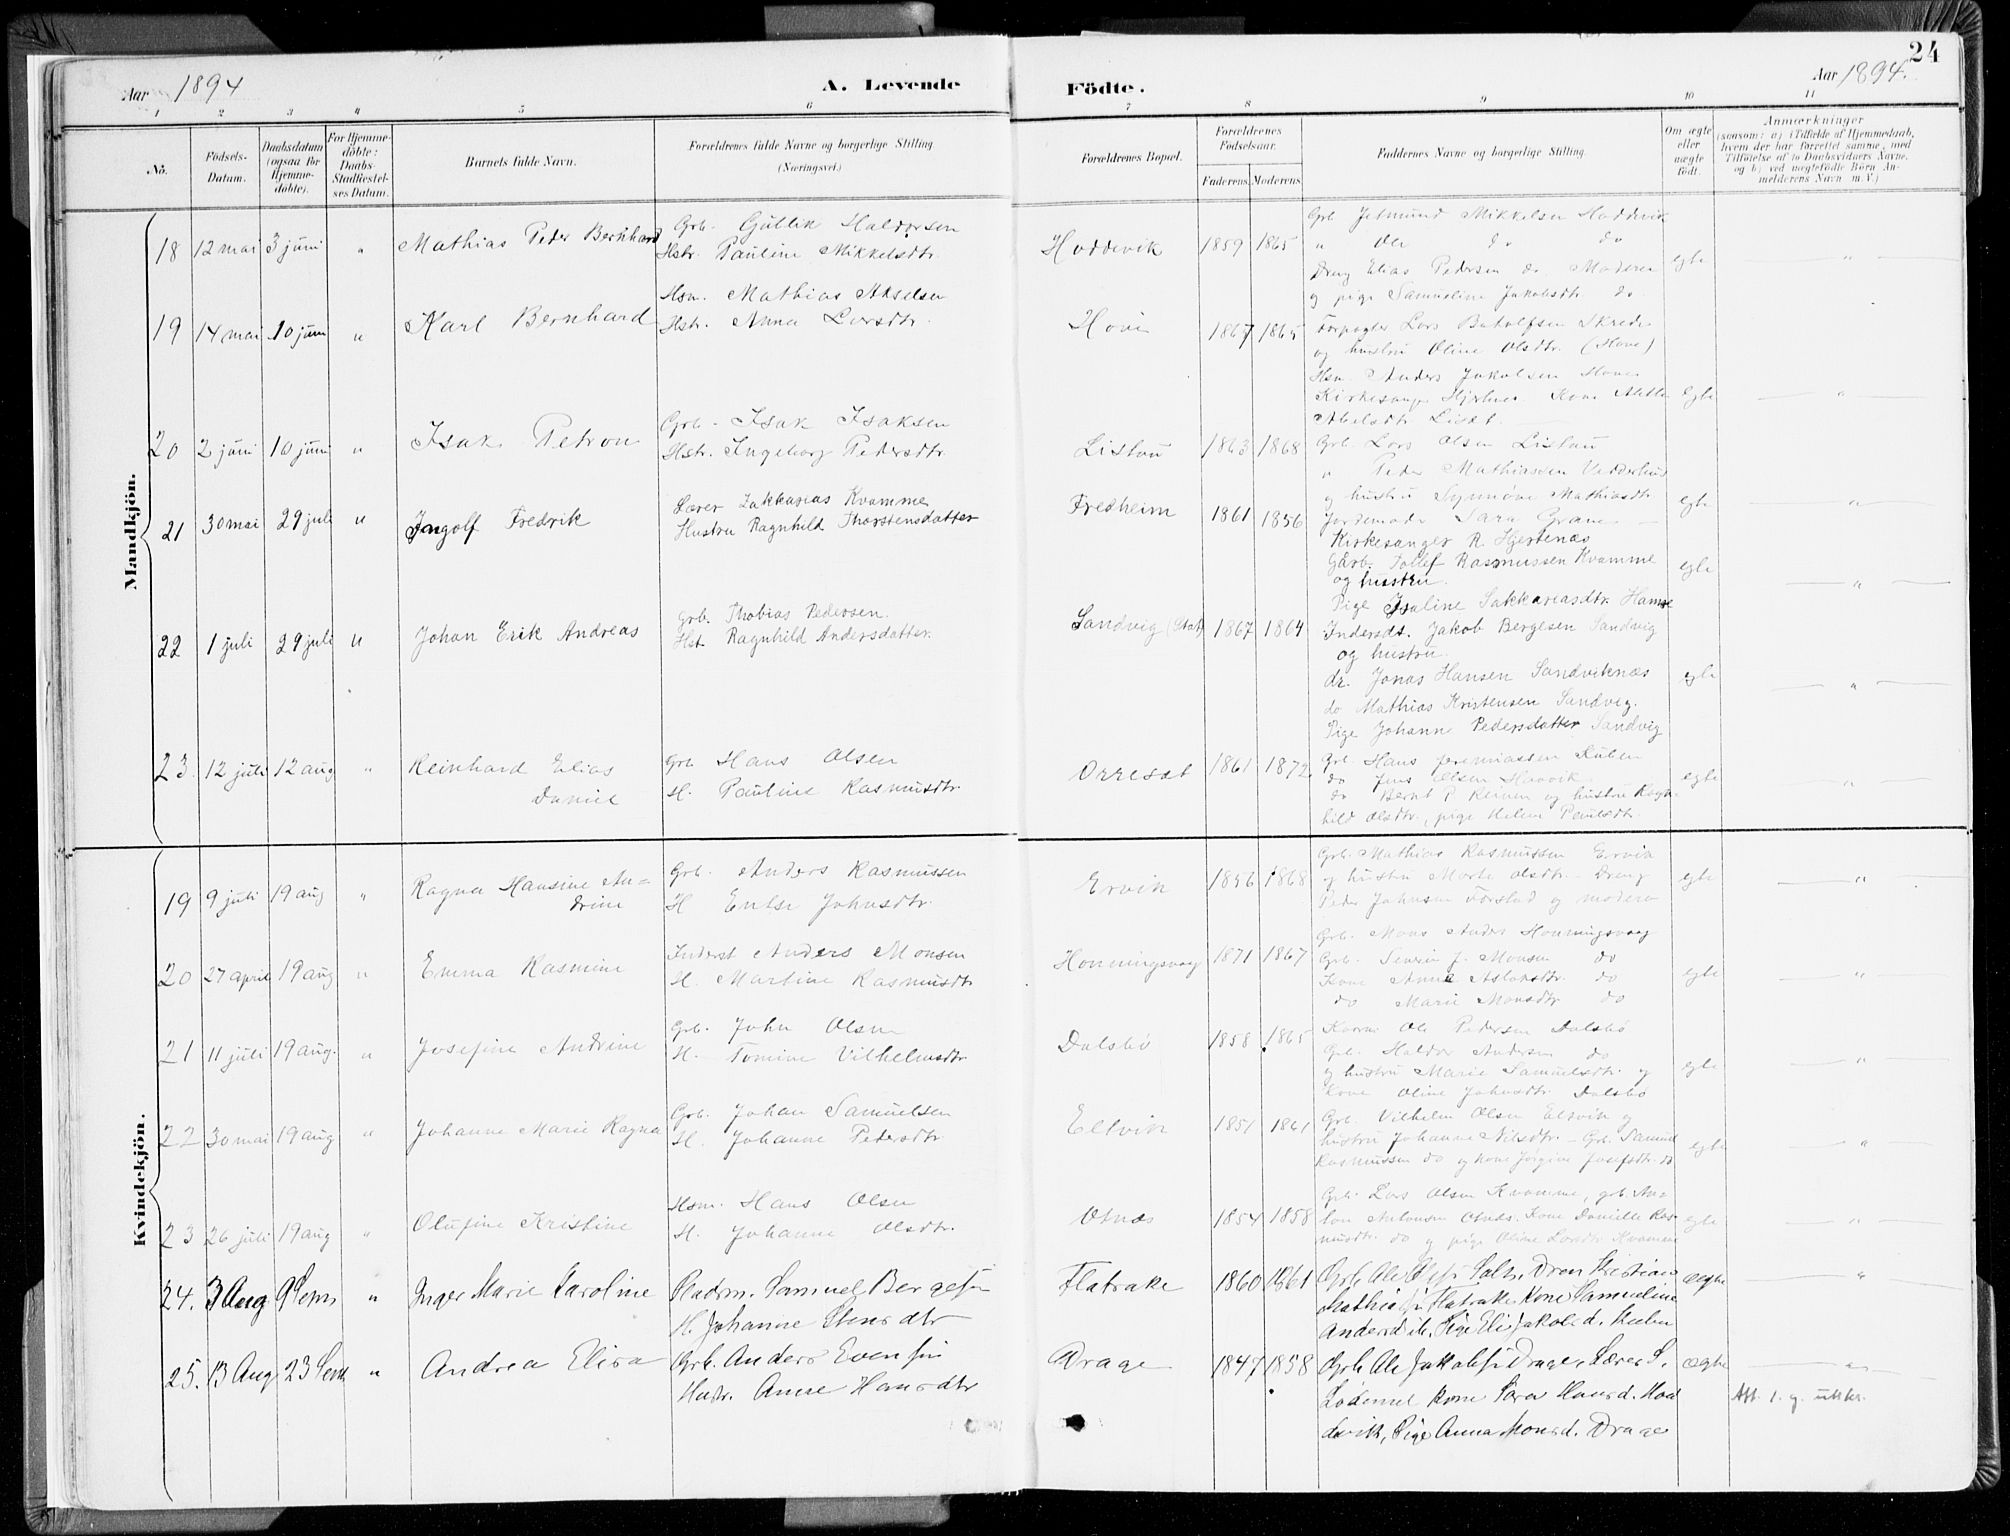 24
Aar 1894
A. Levende Födte.
Aar 1894.
1 2 3 4 5 6 7 8 9 10 11
No.
Födsels-Datum.
Daabsdatum (ogsaa for Hjemmedöbte).
For Hjemmedöbte: Daabs-Stadfæstelses Datum.
Barnets fulde Navn.
Forældrenes fulde Navne og borgerlige Stilling (Næringsvei.)
Forældrenes Bopæl.
Forældrenes Födselsaar.
Faderens. Moderens.
Faddernes Navne og borgerlige Stilling.
Om ægte eller uægte födt.
Anmærkninger
(saasom: a) i Tilfælde af Hjemmedaab, hvem der har forrettet samme, med Tilföielse af to Daabsvidners Navne, og b) ved uægtefödte Börn Anmelderens Navn m. V.)
Mandkjön.
18 12 mai 3 juni " Mathias Peder Bernhard
Grb. Gullik Haldorsen
Hstr. Pauline Mikkelsdtr.
Hoddevik 1859 1865
Grb. Jetmund Mikkelsen Hoddevik
" Ole do do
Dreng Elias Pedersen do. Moderen
og pige Samueline Jakobsdtr. do.
egte "
19 14 mai 10 juni " Karl Bernhard
Hsm. Mathias Akselsen
Hstr. Anna Larsdtr.
Hove 1867 1865
Forpagter Lars Botolfsen Skrede
og hustru Oline Olsdtr. (Hove)
Hsm. Anders Jakobsen Hove
Kirkesanger Hjertnes Kone
Abelsdtr.
egte "
20 2 juni 10 juni " Isak Petron
Grb. Isak Isaksen
Hstr. Ingeborg Pedersdtr.
Listau 1863 1868
Grb. Lars Olsen Listau
" Peder Mathiassen Vedderhus
og hustru Synnöve Mathiasdtr.
Jordemoder Sara Grane
egte "
21 30 mai 29 juli " Ingolf Fredrik
Lærer Zakkarias Kvamme
Hustru Ragnhild Thorstensdatter
Fredheim 1861 1856
Kirkesanger R. Hjertenæs
Gårb. Tollef Rasmussen Kvamme
og hustru.
Pige Isaline Sakkariasdtr. Hamre
egte "
22 1 juli 29 juli " Johan Erik Andreas
Grb. Thobias Pedersen.
Hst. Ragnhild Andersdatter.
Sandvig (Stat) 1867 1864
Inderst. Jakob Bergesen Sandvig
og hustru.
do. Jonas Hansen Sandviknæs
do Mathias Kristensen Sandvig.
Pige Johanne Pedersdatter Sandvig
egte "
23. 12 juli 12 aug " Reinhard Elias
Daniel
Grb Hans Olsen
H. Pauline Rasmusdtr.
Orreset 1861 1872
Grb. Hans Jeremiassen
do Jens Olsen Havvik
do Bernt P. Reinen og hustru Ragn-
hild Olsdtr., pige Helene Paulsdtr.
egte "
Kvindekjön.
19 9 juli 19 aug " Ragna Hansine An=
drine
Grb. Anders Rasmussen
H Entse Johnsdtr.
Ervik 1856 1868
Grb. Mathias Rasmussen Ervik
og hustru Marte Olsdtr. Dreng
Peder Johnsen Förstad og moderen
egte "
20 27 april 19 aug " Emma Rasmine
Inderst Anders Monsen
H. Martine Rasmusdtr
Honningsvaag 1871 1867
Grb. Mons Anders Honningsvaag
Grb. Severin J. Monsen do
Kone Anne Aslaksdtr. do
do Marie Monsdtr do
egte "
21 11 juli 19 aug. " Josefine Andrine
Grb. John Olsen
H. Tomine Vilhelmsdtr
Dalsbö 1858 1865
Ole Pedersen Dalsbö
Grb. Haldor Andersen do
og hustru Marie Samuelsdtr. og
Kone Oline Johnsdtr. Dalsbö
egte "
22 30 mai 19 aug " Johanne Marie Ragna
Grb. Johan Samuelsen
H. Johanne Petersdtr
Eltvik 1851 1861
Grb. Vilhelm Olsen Eltvik og
hustru Johanne Nilsdtr. - Grb. Samuel
Rasmussen do og kone Jörgine Josefsdtr. do
egte "
23 26 juli 19 aug " Olufine Kristine
Hsm. Hans Olsen
H. Johanne Olsdtr.
Otnæs 1854 1858
Grb. Lars Olsen Kvamme, grb. An-
ton Antonsen Otnæs. Kone Danielle Ras-
musdtr. do og pige Oline Larsdtr. Kvamme
egte "
24. 3 Aug 9 Sept " Inger Marie Karoline
Pladsm. Samuel Bergesen
H. Johanne Stensdtr
Flatrake 1860 1861
Grb. Ole Dreng Kristian
Mathiasen Flatrake, Kone Samueline
Andersdtr. Pige Eli Jakobsd.
ægte "
25. 13 Aug 23 Sept " Andrea Elisa
Grb. Anders Evensen
Hustr. Anne Hansdtr
Drage 1847 1858
Grb. Ole Jakobsen Drage, Lærer S.
Lödemel kone Sara Hansd. Hod
devik, Pige Anna Monsd. Drage
ægte "
Att. 1. g. utskr.